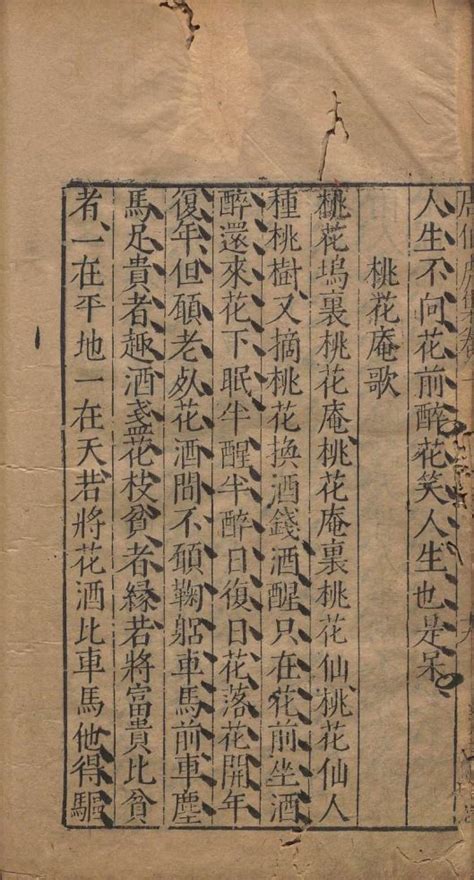 人生不向花前醉花笑人生也是呆
桃花庵歌
桃花塢裏桃花庵桃花庵裏桃花仙桃花仙人
種桃樹又摘桃花換酒錢酒醒只在花前坐酒
醉還來花下眠半醒半醉日復日花落花開年
復年但願老死花酒間不願鞠躬車馬前車塵
馬足貴者趣酒盞花枝貧者緣若將富貴比貧
者一在平地一在天若將花酒比車馬他得驅